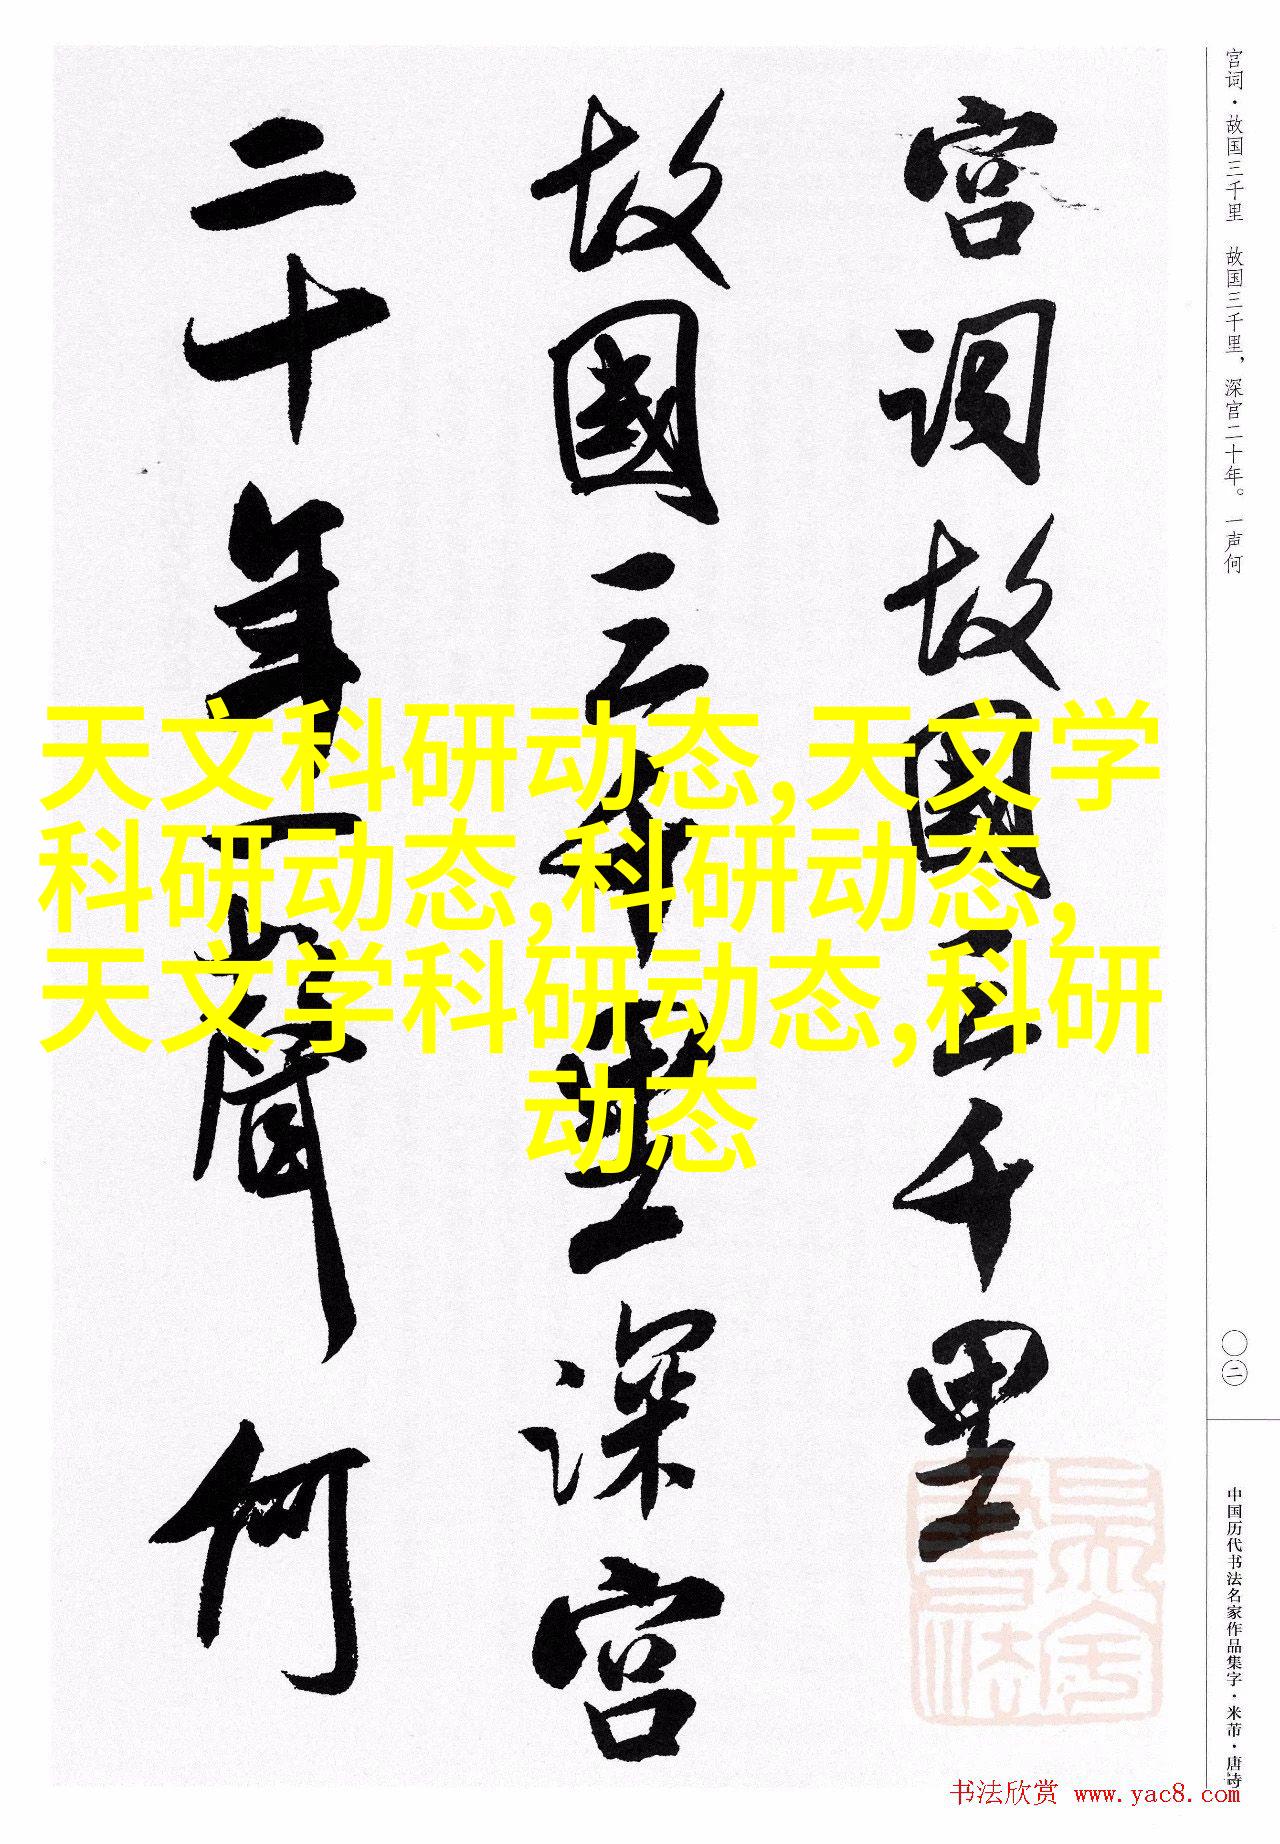 宫词故国三千里
故國三千里深宫
二十年一聲何
天文科研动态,天文学
科研动态,科研动态,
天文学科研动态,科研
动态
宫词·故国三千里 故国三千里，深宫二十年。一声何
〇二
中国历代书法名家作品集字·米芾·唐诗
书法欣赏 www.yac8.com